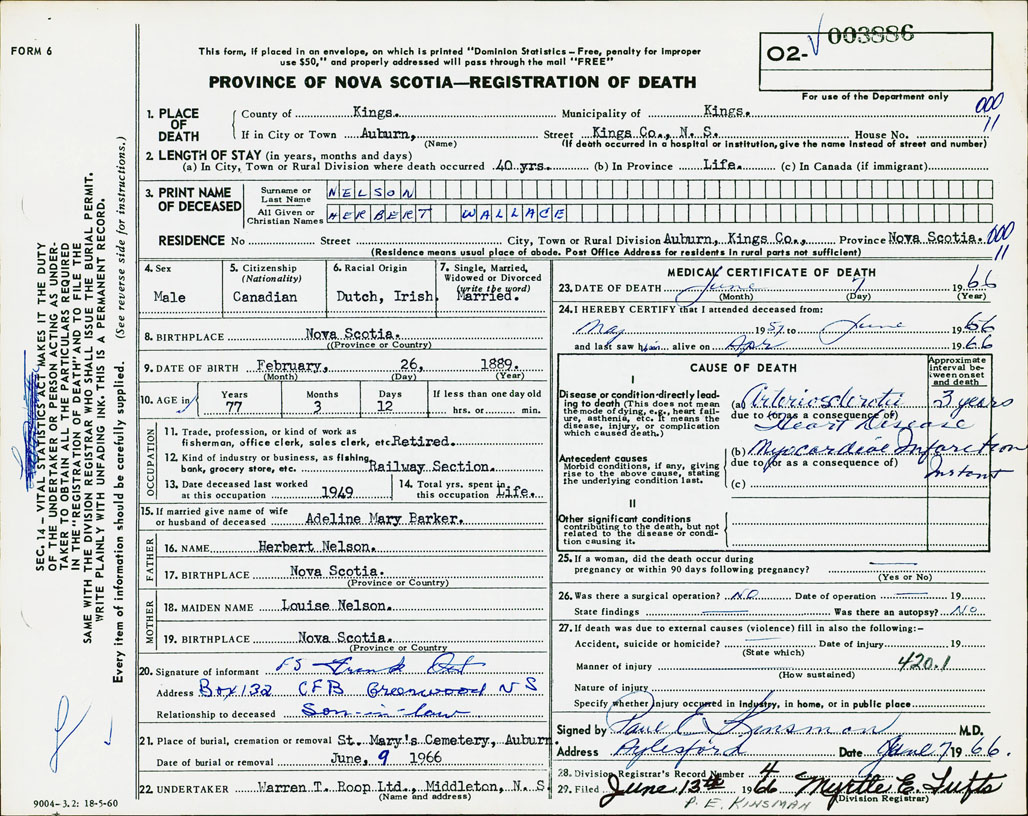 FORM 6
This form, if placed in an envelope, on which is printed "Dominion Statistics – Free, penalty for improper
use $50," and properly addressed will pass through the mail "FREE"
PROVINCE OF NOVA SCOTIA—REGISTRATION OF DEATH
02- 003886
For use of the Department only
000
11
1. PLACE OF DEATH
County of Kings. Municipality of Kings.
If in City or Town Auburn, Street Kings Co., N. S. House No.
(Name) (If death occurred in a hospital or institution, give the name instead of street and number)
2. LENGTH OF STAY (in years, months and days)
(a) In City, Town or Rural Division where death occurred 40 yrs. (b) In Province Life. (c) In Canada (if immigrant)
3. PRINT NAME OF DECEASED
Surname or Last Name NELSON
All Given or Christian Names HERBERT WALLACE
RESIDENCE No Street City, Town or Rural Division Auburn, Kings Co., Province Nova Scotia. 000
11
(Residence means usual place of abode. Post Office Address for residents in rural parts not sufficient)
4. Sex
Male
5. Citizenship
(Nationality)
Canadian
6. Racial Origin
Dutch, Irish
7. Single, Married,
Widowed or Divorced
(write the word)
Married.
8. BIRTHPLACE Nova Scotia.
((Province or Country)
9. DATE OF BIRTH February, 26, 1889.
(Month) (Day) (Year)
10. AGE in
Years Months Days If less than one day old
77 3 12 hrs. or min.
OCCUPATION
11. Trade, profession, or kind of work as
fisherman, office clerk, sales clerk, etc. Retired.
12. Kind of industry or business, as fishing,
bank, grocery store, etc. Railway Section.
13. Date deceased last worked
at this occupation 1949
14. Total yrs. spent in
this occupation Life.
15. If married give name of wife
or husband of deceased Adeline Mary Barker.
FATHER
16. NAME Herbert Nelson.
17. BIRTHPLACE Nova Scotia.
(Province or Country)
MOTHER
18. MAIDEN NAME Louise Nelson.
19. BIRTHPLACE Nova Scotia.
(Province or Country)
20. Signature of informant FS Frank
Address Box 132 CFB Greenwood NS
Relationship to deceased Son-in-law
21. Place of burial, cremation or removal St. Mary's Cemetery, Auburn.
Date of burial or removal June, 9 1966
22. UNDERTAKER Warren T. Roop Ltd., Middleton, N. S.
(Name and address)
MEDICAL CERTIFICATE OF DEATH
23. DATE OF DEATH June 7 1966
(Month) (Day) (Year)
24. I HEREBY CERTIFY that I attended deceased from:
May 1957 to June 1966
and last saw him alive on Apr 1966
CAUSE OF DEATH
Approximate
interval be-
tween onset
and death
I
Disease or condition directly lead-
ing to death (This does not mean
the mode of dying, e.g., heart fail-
ure, asthenia, etc. It means the
disease, injury, or complication
which caused death.)
(a) Arteriosclerotic 3 years
due to (or as a consequence of)
Heart Disease
Antecedent causes
Morbid conditions, if any, giving
rise to the above cause, stating
the underlying condition last.
(b) Myocardial Infarction
due to (or as a consequence of) Instant
(c)
II
Other significant conditions
contributing to the death, but not
related to the disease or condi-
tion causing it.
25. If a woman, did the death occur during
pregnancy or within 90 days following pregnancy?
(Yes or No)
26. Was there a surgical operation? NO Date of operation 19
State findings Was there an autopsy? No
27. If death was due to external causes (violence) fill in also the following:–
Accident, suicide or homicide? Date of injury 19
(State which)
Manner of injury 420.1
(How sustained)
Nature of injury
Specify whether injury occurred in Industry, in home, or in public place
Signed by Paul E Kinsman M.D.
Address Aylesford Date June 7 1966.
28. Division Registrar's Record Number 4
29. Filed June 13th 1966 Myrtle E. Tufts
(Division Registrar)
P. E. KINSMAN
SEC. 14 – VITAL STATISTICS ACT MAKES IT THE DUTY
OF THE UNDERTAKER OR PERSON ACTING AS UNDER-
TAKER TO OBTAIN ALL THE PARTICULARS REQUIRED
IN THE "REGISTRATION OF DEATH" AND TO FILE THE
SAME WITH THE DIVISION REGISTRAR WHO SHALL ISSUE THE BURIAL PERMIT.
WRITE PLAINLY WITH UNFADING INK. THIS IS A PERMANENT RECORD.
Every item of information should be carefully supplied. (See reverse side for instructions.)
9004–3.2: 18-5-60